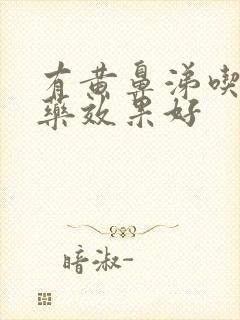 有黄鼻涕喫
藥效果好
暗淑-